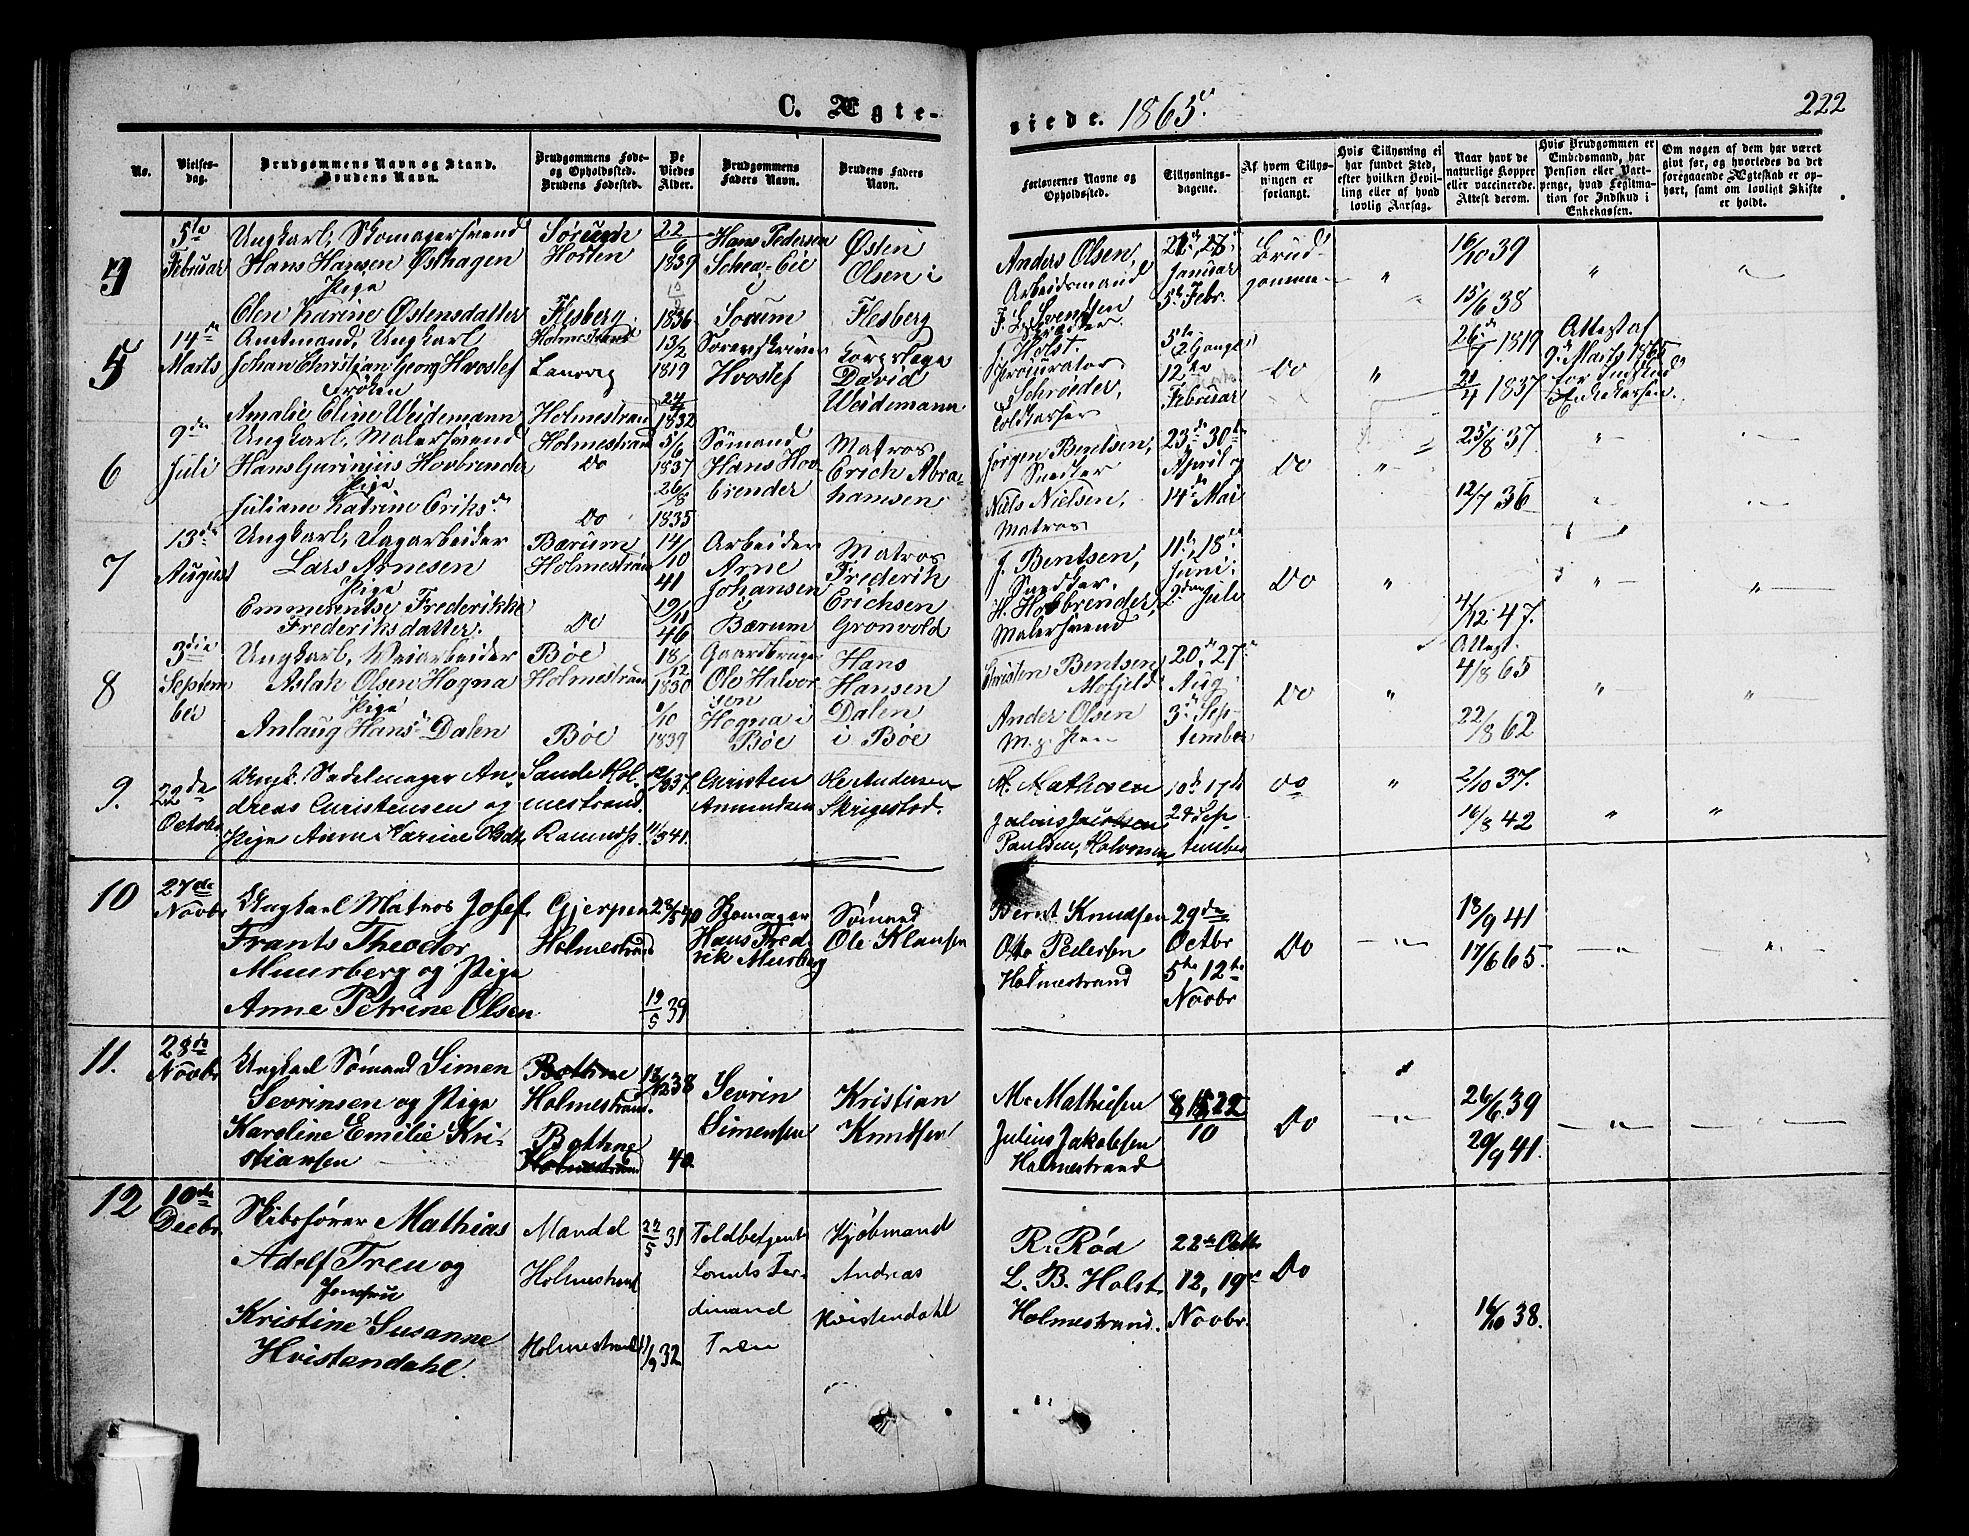 C. Ægte-
viede. 1865.
222
No.
Vielses-
dag.
Brudgommens Navn og Stand.
Brudens Navn.
Brudgommens Føde-
og Opholdssted.
Brudens Fødested.
De
Viedes
Alder.
Brudgommens
Faders Navn.
Brudens Faders
Navn.
Forlovernes Navne og
Opholdssted.
Tillysnings-
dagene.
Af hvem Tillys-
ningen er
forlangt.
Hvis Tillysning ei
har fundet Sted,
efter hvilken Bevil-
ling eller af hvad
lovlig Aarsag.
Naar havt de
naturlige Kopper
eller vaccinerede.
Attest derom.
Hvis Brudgommen er
Embedsmand, har
Pension eller Vart-
penge, hvad Legitima-
tion for Indskud i
Enkekassen.
Om nogen af dem har været
givt før, og hvorledes da det
foregaaende Ægteskab er op-
hørt, samt om lovligt Skifte
er holdt.
5te
Februar
Ungkarl, Skomagersvend
Hans Hansen Østhagen
Pige
Olea Karine Østensdatter
Sørum
Horten
Flesberg
22/6
1839
1836
Hans Pedersen
i
Sorum
Østen
Olsen i
Flesberg
Anders Olsen,
Arbeidsmand
Januar
5te Febr.
Brud-
gommen
16/10 39
15/6 38
5
14de
Marts
Amtmand, Ungkarl
Johan Christian Georg Hvoslef
Frøken
Amalie Eline Weidemann
Holmestrand
Laurvig
Holmestrand
13/2
1819
1832
Sorenskriver
Hvoslef
David
Weidemann
J. Holst.
Procurator
Schrøder,
Toldkasser
5te
12te
Februar
Do
26/7 1819
20/4 1837
Attest af
9de Marts 1865
for Indskud
i Enkekassen.
6
9de
Juli
Ungkarl, Malersvend
Hans Hovbrender
Pige
Juliane Katrine Eriksd.
Holmestrand
Do
Do
5/6
1837
26/8
1835
Sømand
Hans Hov-
brender
Matros
Erich Abra-
hamsen
Jørgen Bentsen,
Snedker
Niels Nielsen,
Matros
23de, 30te
April og
14de Mai
Do
25/8 37
12/7 36
7
13de
August
Ungkarl, Dagarbeider
Lars Arnesen
Pige
Emmerentse Frederikke
Frederiksdatter.
Bærum
Holmestrand
Do
14/10
41
19/11
46
Arbeider
Arne
Johansen
i
Bærum
Matros
Frederik
Erichsen
Grønvold
J. Bentsen,
Snedker.
H. Hovbrender,
Malersvend
11te, 18de
Juni
2den Juli
Do
4/12 47.
8
3die
Septem
ber
Ungkarl, Veiarbeider
Aslak Olsen Hogna
Pige
Anlaug Hansd. Dalen
Bøe
Holmestrand
Bøe
18/12
1830
1/10
1839
Gaardbruger
Ole Halvor-
sen
Hogna i
Bøe
Hans
Hansen
Dalen
i Bøe
Christen Bentsen
Mofjeld
Ander Olsen
20de, 27de
Aug.
3de Sep-
tember
Do
Attest.
4/8 65
22/8 62
9.
22de
October
Ungk. Sadelmager An-
dreas Christensen og
Pige Anne Karine Olsdtr.
Sande Hol-
mestrand.
11/3 41.
Christen
Amundsen
Ole Andersen
M. Mathisen
Julius Jacobsen
Paulsen, Halvorsen
10de 17de
24 Sep-
tember
do
2/10 37.
16/8 42
10
27de
Novbr
Ungkarl Matros Josef
Frants Theodor
Muursberg og Pige
Anne Petrine Olsen
Gjerpen
Holmestrand
28/5 40
19/5 39
Skomager
Hans Fred-
rik Mursberg
Sømand
Ole Klausen
Bernt Knudsen
Otto Pedersen
Holmestrand
29de
Octbr
5te 12te
Novbr
Do
18/9 41
17/6 65.
11.
28de
Novbr
Ungkarl Sømand Simen
Sevrinsen og Pige
Karoline Emilie Kri-
stiansen
Bothne
Holmestrand.
Bothne
Holmestrand
38
40
Sevrin
Simensen
Kristian
Knudsen
M. Mathisen
Julius Jakobsen
Holmestrand
8 15 22
10
Do
26/6 39
29/9 41.
12
10de
Decbr
Skibsfører Mathias
Adolf Treu og
Jomfru
Kristine Susanne
Hvistendahl.
Mandal
Holmestrand
Holmestrand
22/5 31
1/9 32
Toldbetjent
Lorents Fer-
dinand
Treu
Kjøbmand
Andreas
Hvistendahl
R. Rød
L. B. Holst
Holmestrand.
22de Octbr
12, 19de
Novbr.
Do
16/10 38.